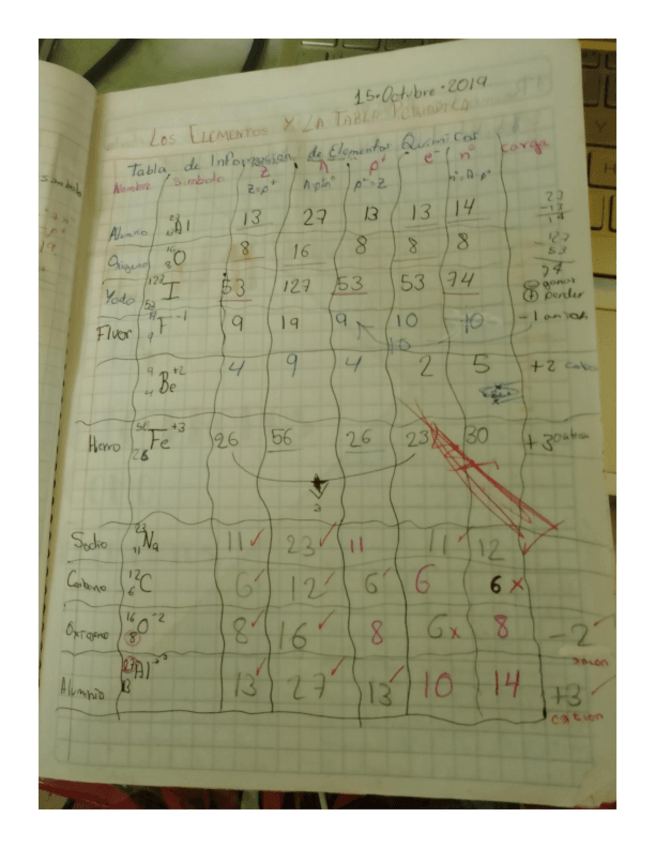 15·Octubre·2019
Los Elementos y La Tabla Periodica
Tabla de Información de Elementos Químicos
Nombre Simbolo Z A p+ e- n° carga
Z=p+ p+=Z n°=A-p+
Aluminio 27 13 Al 13 27 13 13 14
27 -13 14
Oxigeno 16 8 O 8 16 8 8 8
127 53 74
Yodo 53 I 53 127 53 53 74
- ganar
+ perder
Fluor 19 9 F -1 9 19 9 10 10 -1 anion
10
9 4 Be +2 4 9 4 2 5 +2
Hierro 56 26 Fe +3 26 56 26 23 30 +3
Sodio 23 11 Na 11 23 11 11 12
Carbono 12 6 C 6 12 6 6 6 x
Oxigeno 16 8 O -2 8 16 8 6 x 8 -2
anion
Aluminio 27 13 Al 13 27 13 10 14 +3
cation